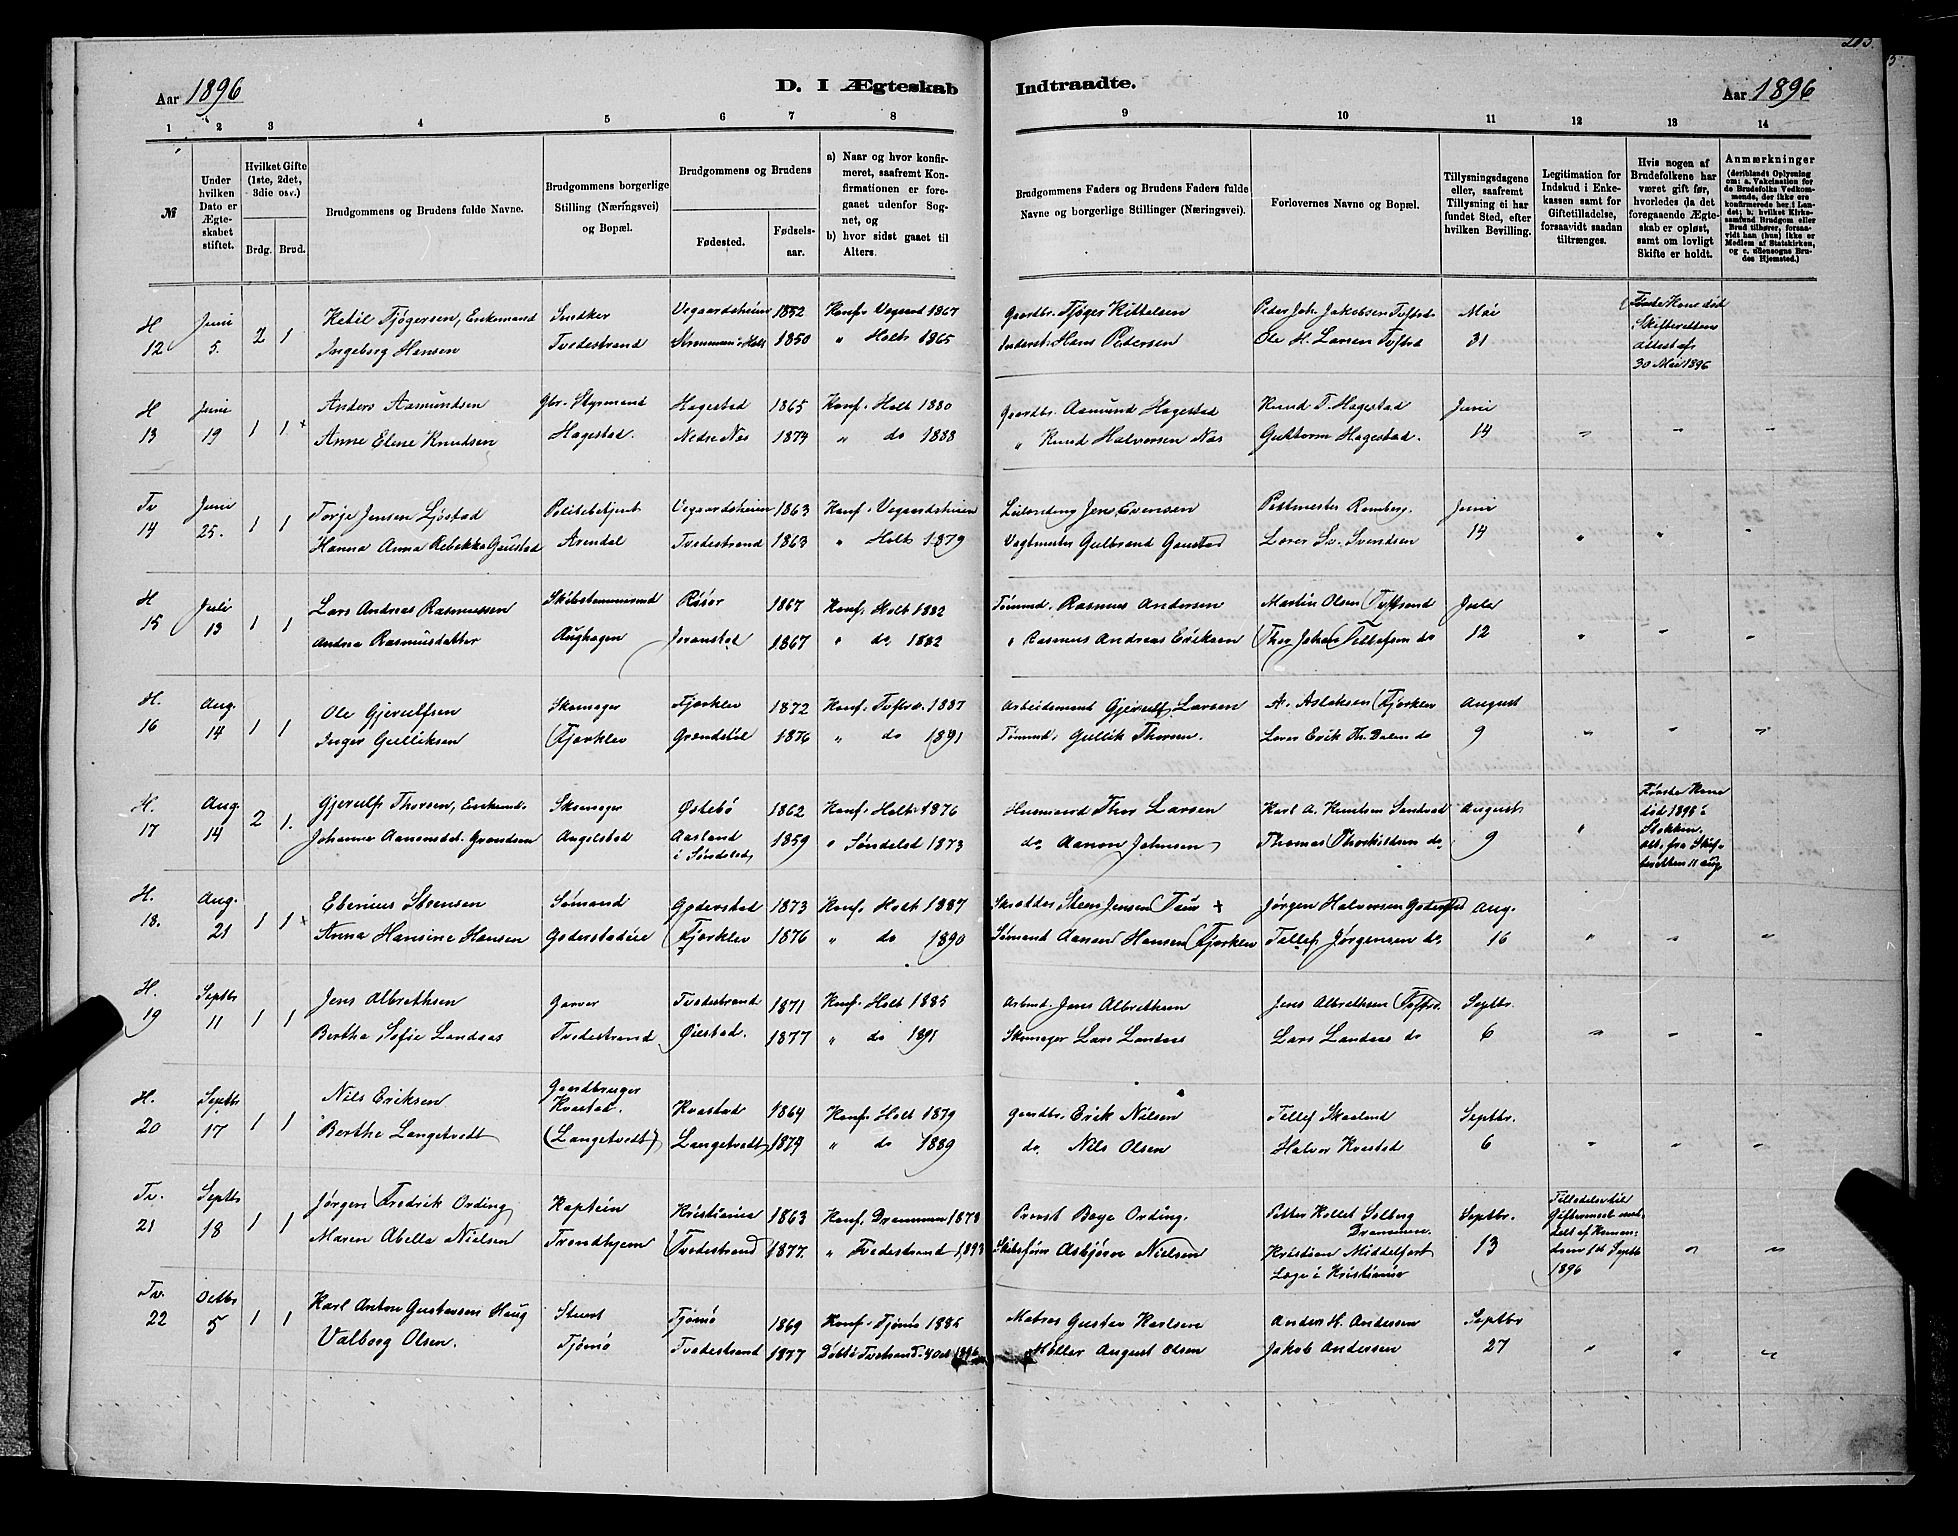 213.
Aar 1896
D. I Ægteskab Indtraadte.
Aar 1896
1 2 3 4 5 6 7 8 9 10 11 12 13 14
№
Under hvilken Dato er Ægteskabet stiftet.
Hvilket Gifte (1ste, 2det, 3die osv.)
Brdg. Brud.
Brudgommens og Brudens fulde Navne.
Brudgommens borgerlige Stilling (Næringsvei) og Bopæl.
Brudgommens og Brudens
Fødested. Fødselsaar.
a) Naar og hvor konfirmeret, saafremt Konfirmationen er foregaaet udenfor Sognet, og
b) hvor sidst gaaet til Alters.
Brudgommens Faders og Brudens Faders fulde Navne og borgerlige Stillinger (Næringsvei).
Forlovernes Navne og Bopæl.
Tillysningsdagene eller, saafremt Tillysning ei har fundet Sted, efter hvilken Bevilling.
Legitimation for Indskud i Enkekassen samt for Giftetilladelse, forsaavidt saadan tiltrænges.
Hvis nogen af Brudefolkene har været gift før, hvorledes da det foregaaende Ægteskab er opløst, samt om lovligt Skifte er holdt.
Anmærkninger (deriblandt Oplysning om: a. Vakcination for de Brudefolks Vedkommende, der ikke ere konfirmerede her i Landet; b. hvilket Kirkesamfund Brudgom eller Brud tilhører, forsaavidt han (hun) ikke er Medlem af Statskirken, og c. udensogns Brudes Hjemsted.)
H Juni 2 1 Ketil Tjøgersen, Enkemand Vegaardsheien 1852 Konf. Vegaard 1867 Gaardbr. Tjøger Kittelsen Peder Joh. Jakobsen Mai Første Kone død
12 5. Ingeborg Hansen Tvedestrand 1850 " Holt 1865 Inderst. Hans Pedersen Ole H. Larsen 31 Skifteretten attest af 30 Mai 1896
H Juni 1 1 Anders Aasmundsen Gbr. Styrmand Hagestad 1865 Konf. Holt 1880 Gaardbr. Aasmund Hagestad Knud T. Hagestad Juni
13 19 Anne Elene Knudsen Hagestad. Nedre Næs 1874 " do 1888 " Knud Halvorsen Næs Guttorm Hagestad. 14 " " "
Tv Juni 1 1 Torje Jensen Ljøstad Politibetjent Vegaardsheien 1863 Konf. Vegaardsheien Jens Evensen Postmester Romberg. Juni
14 25. Hanna Anna Rebekka Gaustad Arendal Tvedestrand 1863 " Holt 1879 Vagtmester Gulbrand Gaustad Lærer Sv. Svendsen 14 " " "
H Juli 1 1 Lars Andreas Rasmussen Skibstømmermd Risør 1867 Konf. Holt 1882 Tømmd. Rasmus Andersen Martin Olsen Juli
15 13 Andrea Rasmusdatter Aughagen 1867 " do 1882 " Rasmus Andreas Eriksen Thor Johan Tellefsen do 12 " " "
H. Aug. 1 1 Ole Gjerulfsen Skomager Fjærklev 1872 Konf. 1887 Arbeidsmand Gjerulf Larsen A. Aslaksen Fjærklev August
16 14 Inger Gulliksen Fjærklev Grændstøl 1876 " do 1891 Tømmd. Gullik Thorsen. Lærer Erik Kr. Dalen do 9 " " "
H. Aug. 2 1. Gjerulf Thorsen, Enkemd. Skomager Østebø 1862 Konf. Holt 1876 Husmand Thor Larsen Karl A. Knutsen August Første Kone
17 14 Johanne Angelstad Aasland i Søndeled 1859 " Søndeled 1873 do. Aanon Johnsen Thomas Thorkildsen do. 9 "
H. Aug. 1 1 Ebenius Steensen Sømand Goderstad 1873 Konf. Holt 1887 Steen Jensen + Jørgen Halvorsen Goderstad Aug.
18. 21 Anna Hansine Hansen Goderstadeie Fjærklev 1876 " do 1890 Sømand Aanon Hansen Fjærklev Tellef Jørgensen do. 16 " " "
H. Septbr 1 1 Jens Albrethsen Garver Tvedestrand 1871 Konf. Holt 1885 Arbmd. Jens Albrethsen Jens Albrethsen Septbr.
19 11 Bertha Sofie Landaas Tvedestrand Øiestad. 1877 " do 1891 Skomager Lars Landaas Lars Landaas do 6 " " "
H. Septbr 1 1 Nils Eriksen Gaardbruger Kvastad. Kvastad 1864 Konf. Holt 1879 Gaardbr. Erik Nilsen Tellef Skaaland Septbr.
20 17 Berthe Langetvedt (Langetvedt) Langetvedt 1874 " do 1889 do. Nils Olsen Halvor Kvastad 6 " " "
Tv. Septbr 1 1 Jørgen Fredrik Ording Kaptein Kristiania 1863 Konf. Drammen 1878 Provst Baye Ording. Petter Kollet Solberg Drammen. Septbr.
21 18 Maren Abella Nielsen Trondhjem Tvedestrand 1877. " Tvedestrand 1893 Skibsfører Asbjørn Nielsen Kristian Middelfart Læge i Kristiania 13 1896 " "
Tv. Octbr 1 1 Karl Anton Gustavsen Haug Stuert Tjømø 1869 Konf. Tjømø 1885 Matros Gustav Karlsen Anders H. Andersen Septbr
22 5 Valborg Olsen. Tjømø Tvedestrand 1877 Møller August Olsen Jakob Andersen 27 " " "